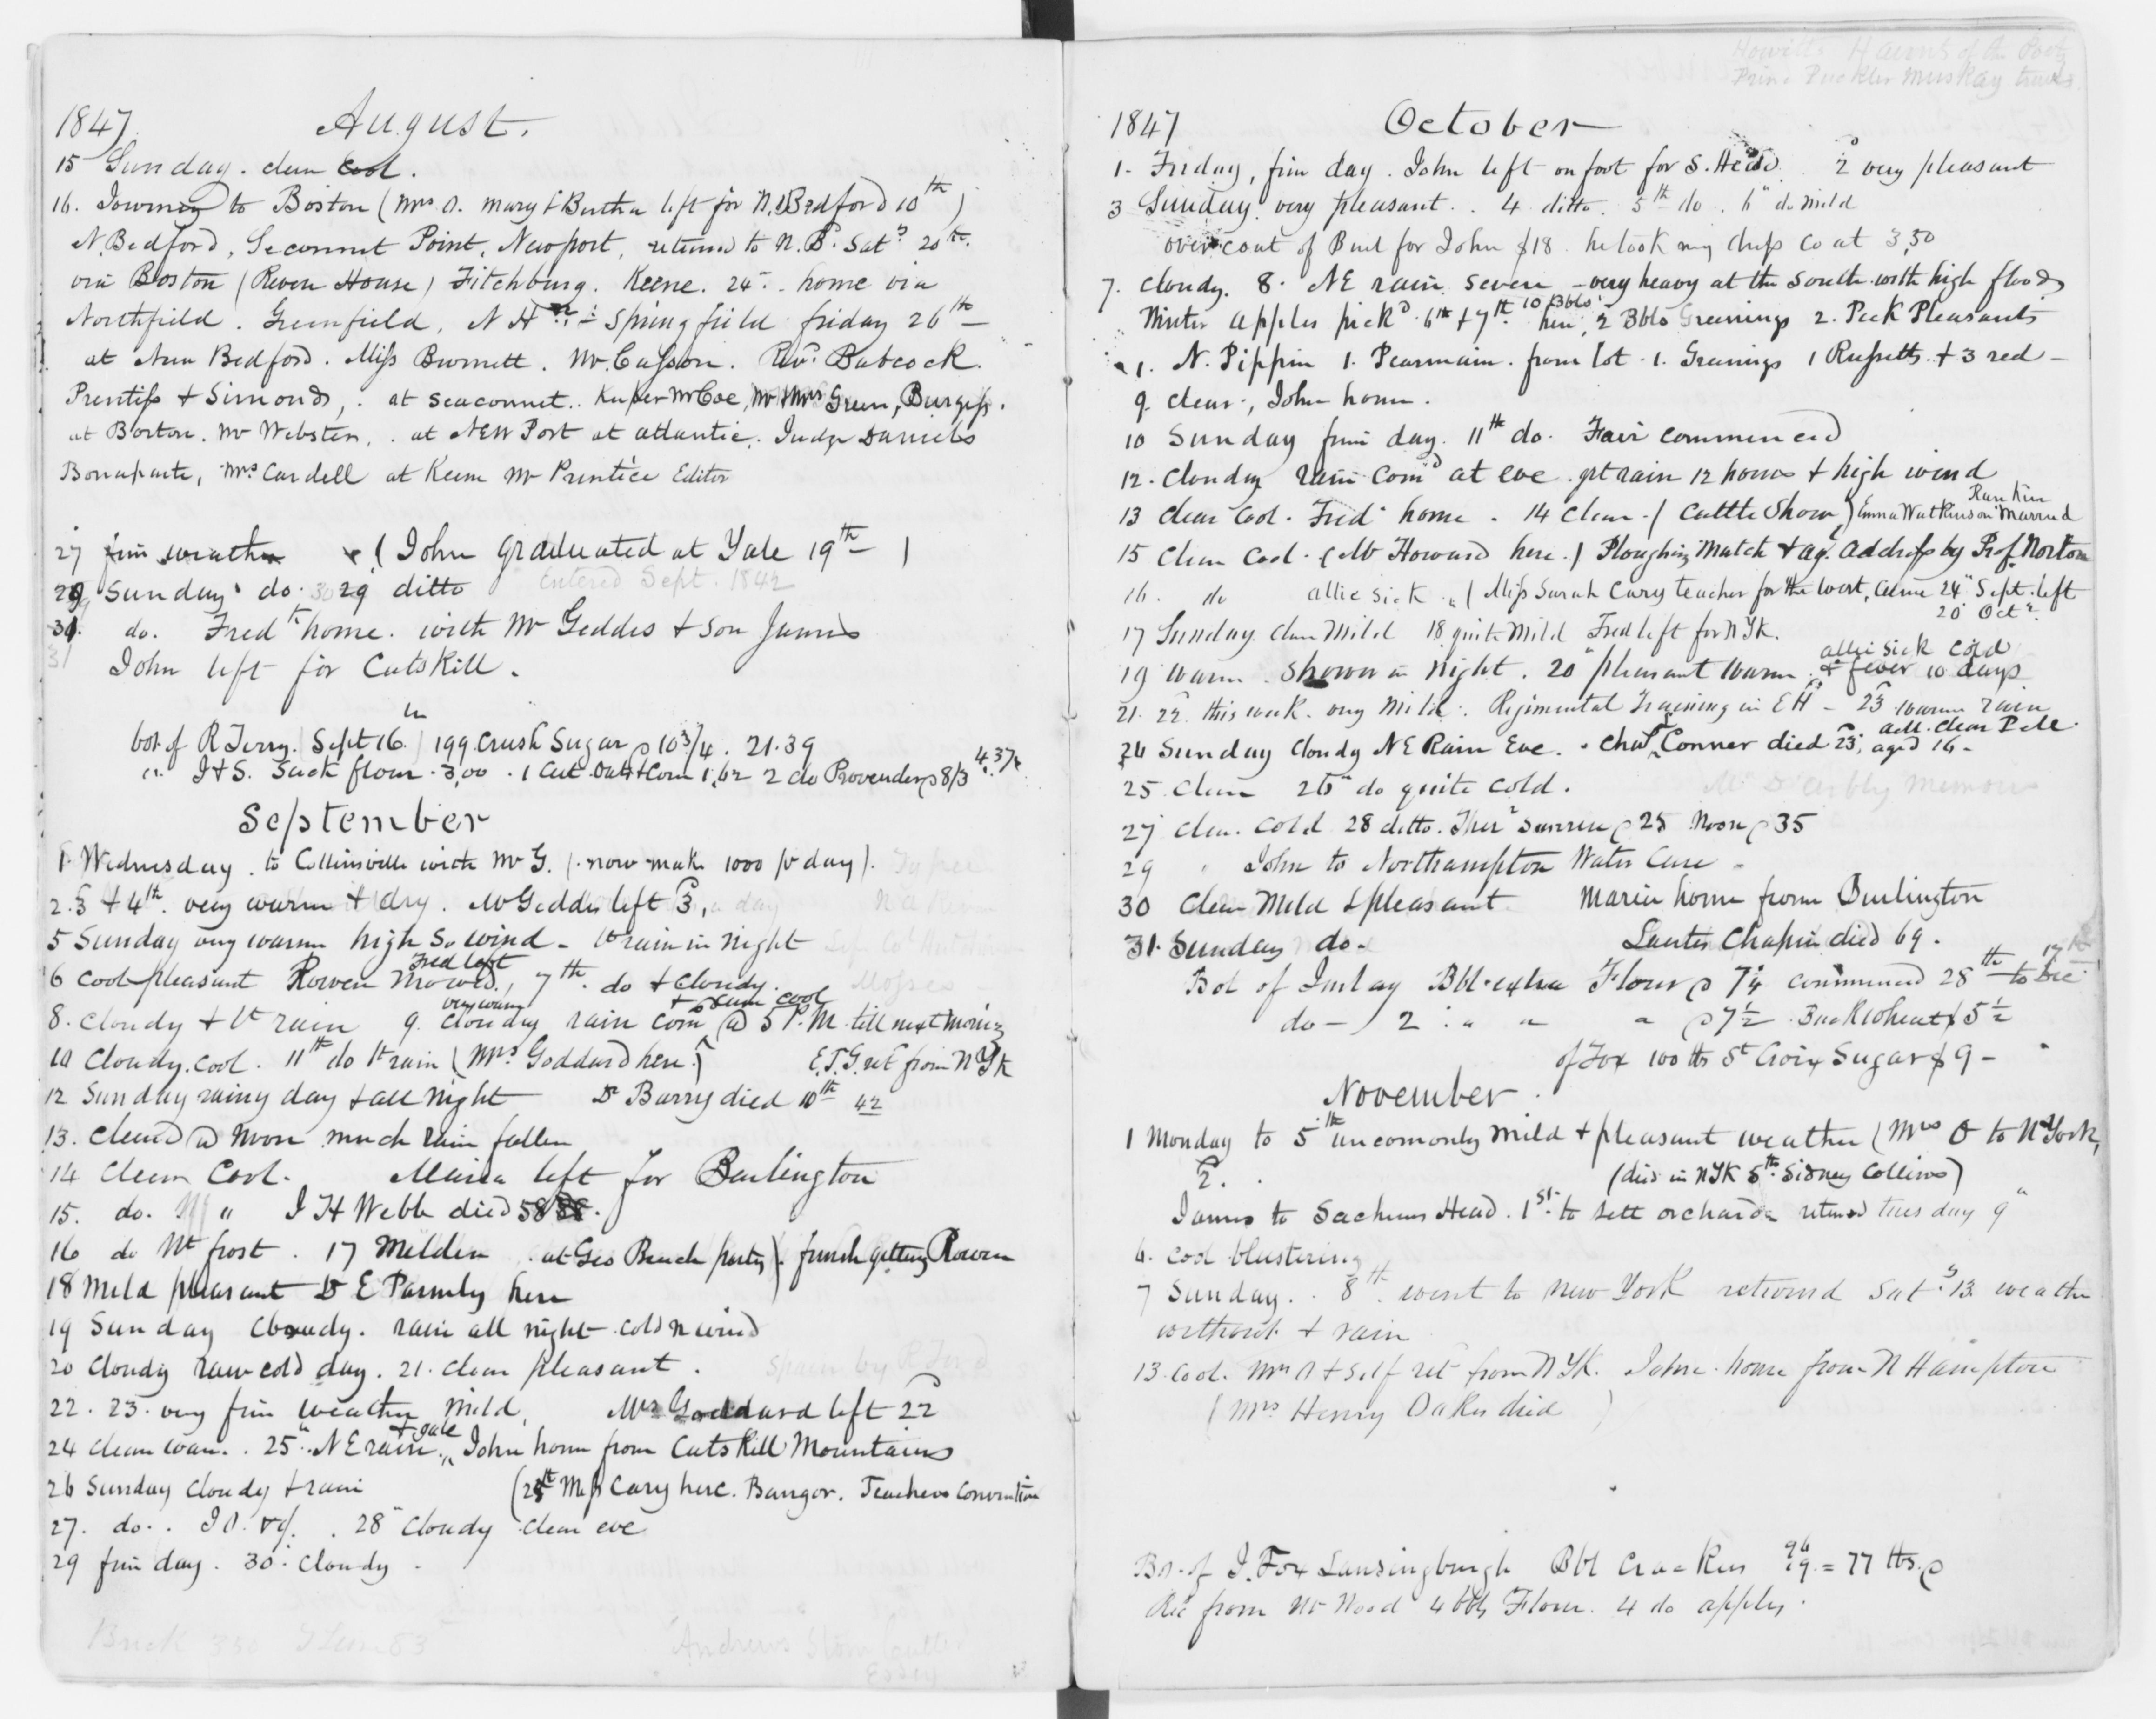 1847 August.
15 Sunday. clear cool.
16. Journey to Boston (Mrs O. Mary & Bertha left for N. Bedford 10th)
N. Bedford, Seconnet Point, Newport, returned to N.B. Satd 20th.
via Boston (Revere House) Fitchburg. Keene. 24. home via
Northfield. Greenfield, N Hn & Springfield friday 26th
at New Bedford. Miss Burnett. Mr. Casson. Revd. Babcock.
Prentiss & Simonds, . at Seaconnet. Keeper Mr Coe, Mr & Mrs Green, Burgess.
at Boston. Mr Webster, . at NewPort at atlantic. Judge Daniels
Bonaparte, Mrs Cardell at Keene Mr Prentice Editor
27 fine weather (John graduated at Yale 19th)
Entered Sept. 1842
Sunday do. 29 ditto
31. do. Fred home. with Mr Geddes & Son James
John left for Catskill.
bot of R Terry. Sept 16. 199 Crush Sugar @ 10 3/4. 21.39
" J & S. Sack flour 3,00 . 1 Cwt Oats & Corn 1,62 2 do Provender @ 8/3 4.37
September
1. Wednesday. to Collinsville with Mr G. (now make 1000 pr day).
2. 3 & 4th. very warm & dry. Mr Geddes left 3,
5 Sunday very warm high So wind - lt rain in night
Fred left
6 cool pleasant Rowen Mowed. 7th. do & cloudy.
very warm
8. Cloudy & lt rain 9. cloudy rain com @ 5 P.M. till next morng
10 Cloudy. cool. 11th do lt rain (Mrs Goddard here.) E.T.G. ret from N Yk
12 Sunday rainy day & all night Dr Barry died 10th 42
13. Cleard @ Noon much rain fallen
14 Clear Cool. Maria left for Burlington
15. do. " J H Webb died 58
16 do Wt frost. 17 Milder . at Geo Beach party) finish getting Rowen
18 Mild pleasant Dr E Parmly here
19 Sunday cloudy. rain all night cold n wind
20 Cloudy raw cold day. 21. clear pleasant.
22. 23. very fine weather mild, Mrs Goddard left 22
& gale
24 clear warm. 25" N E rain., John home from Catskill Mountains
26 Sunday cloudy & rain (25th Miss Cary here. Bangor. Teachers Convention
27. do. . 28" Cloudy clear eve
29 fine day. 30. Cloudy
Howitts Haunts of the Poets
Prince Puckler Muskay travels
1847 October
1. Friday, fine day. John left on foot for S. Head. 2d very pleasant
3 Sunday. very pleasant. . 4 ditto. 5th do. 6" do mild
over coat of Buel for John $18. he took my dress coat 3,50
7. Cloudy. 8. NE rain severe - very heavy at the South with high floods
Winter apples pickd 6th & 7th. 10 Bbls. here, 2 Bbls Greenings 2. Peck Pleasants
1. N. Pippin 1. Pearmain. from lot. 1. Greenings 1 Russetts & 3 red
9. clear, John home.
10 Sunday fine day. 11th do. Fair commenced
12. Cloudy rain comd at eve. grt rain 12 hours & high wind
Rankin
13 Clear cool. Fred home. 14 Clear. (Cattle Show) Emma Watkinson Married
15 Clear Cool. (Mr Howard here.) Ploughing Match & agl. address by Prof. Norton
16. do allie sick (Miss Sarah Cary teacher for the west, came 24" Sept. left
20 Oct.
17 Sunday. Clear Mild 18 quite Mild Fred left for N Yk.
allie sick cold
19 warm. Shower in night. 20" pleasant warm. & fever 10 days
21. 22. this week. very mild. Regimental Training in E H - 23 warm rain
24 Sunday cloudy N E Rain Eve. Chas Conner died 23. aged 16.
25 Clear 26" do quite cold.
27 Clear. cold 28 ditto. Ther sunrise @ 25 Noon @ 35
29 " John to Northampton Water Cure
30 Clear Mild & pleasant Maria home from Burlington
31. Sunday do. Laertes Chapin died 69.
Bot of Imlay Bbl. extra Flour @ 7 1/4 commenced 28th to Dec 17th
do - 2 " " " @ 7 1/2 Buckwheat $ 5 1/2
of Fox 100 lbs St Croix Sugar $ 9 -
November
1 Monday to 5th uncomonly mild & pleasant weather (Mrs O to N York,
2. . (died in N Yk 5th. Sidney Collins)
James to Sachems Head. 1st. to sett orchard returned tuesday 9"
6. cool blustering
7 Sunday. . 8th. went to New York returned Satd. 13. weather
without & rain
13. Cool. Mrs O & self ret from N Yk. John home from N Hampton
(Mrs Henry Oakes died)
Bot. of J. Fox Lansingburgh Bbl Crackers 96 19 = 77 lbs. @
Recd from Mr Wood 4 bbls Flour. 4 do apples.